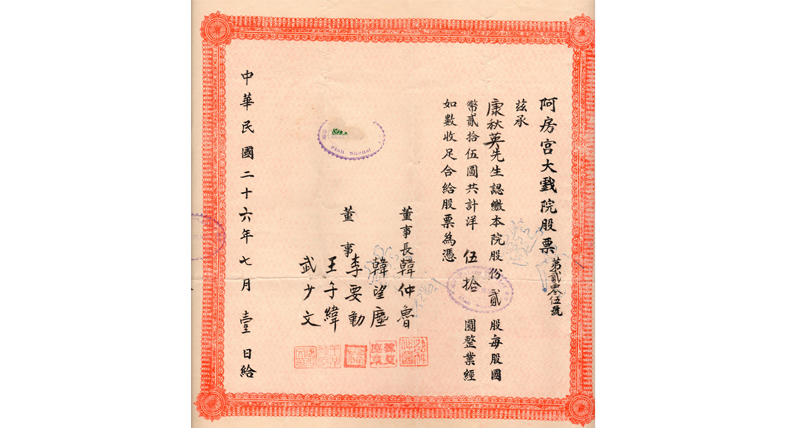 阿房宮大戲院股票
第貳零伍號
茲承
康秋英先生認繳本院股份貳股每股國
幣貳拾伍圓共計洋伍拾圓整業經
如數收足合給股票為憑
董事長韓仲魯
韓望塵
董事李要勤
王子緯
武少文
中華民國二十六年七月壹日給
Sian Shensi